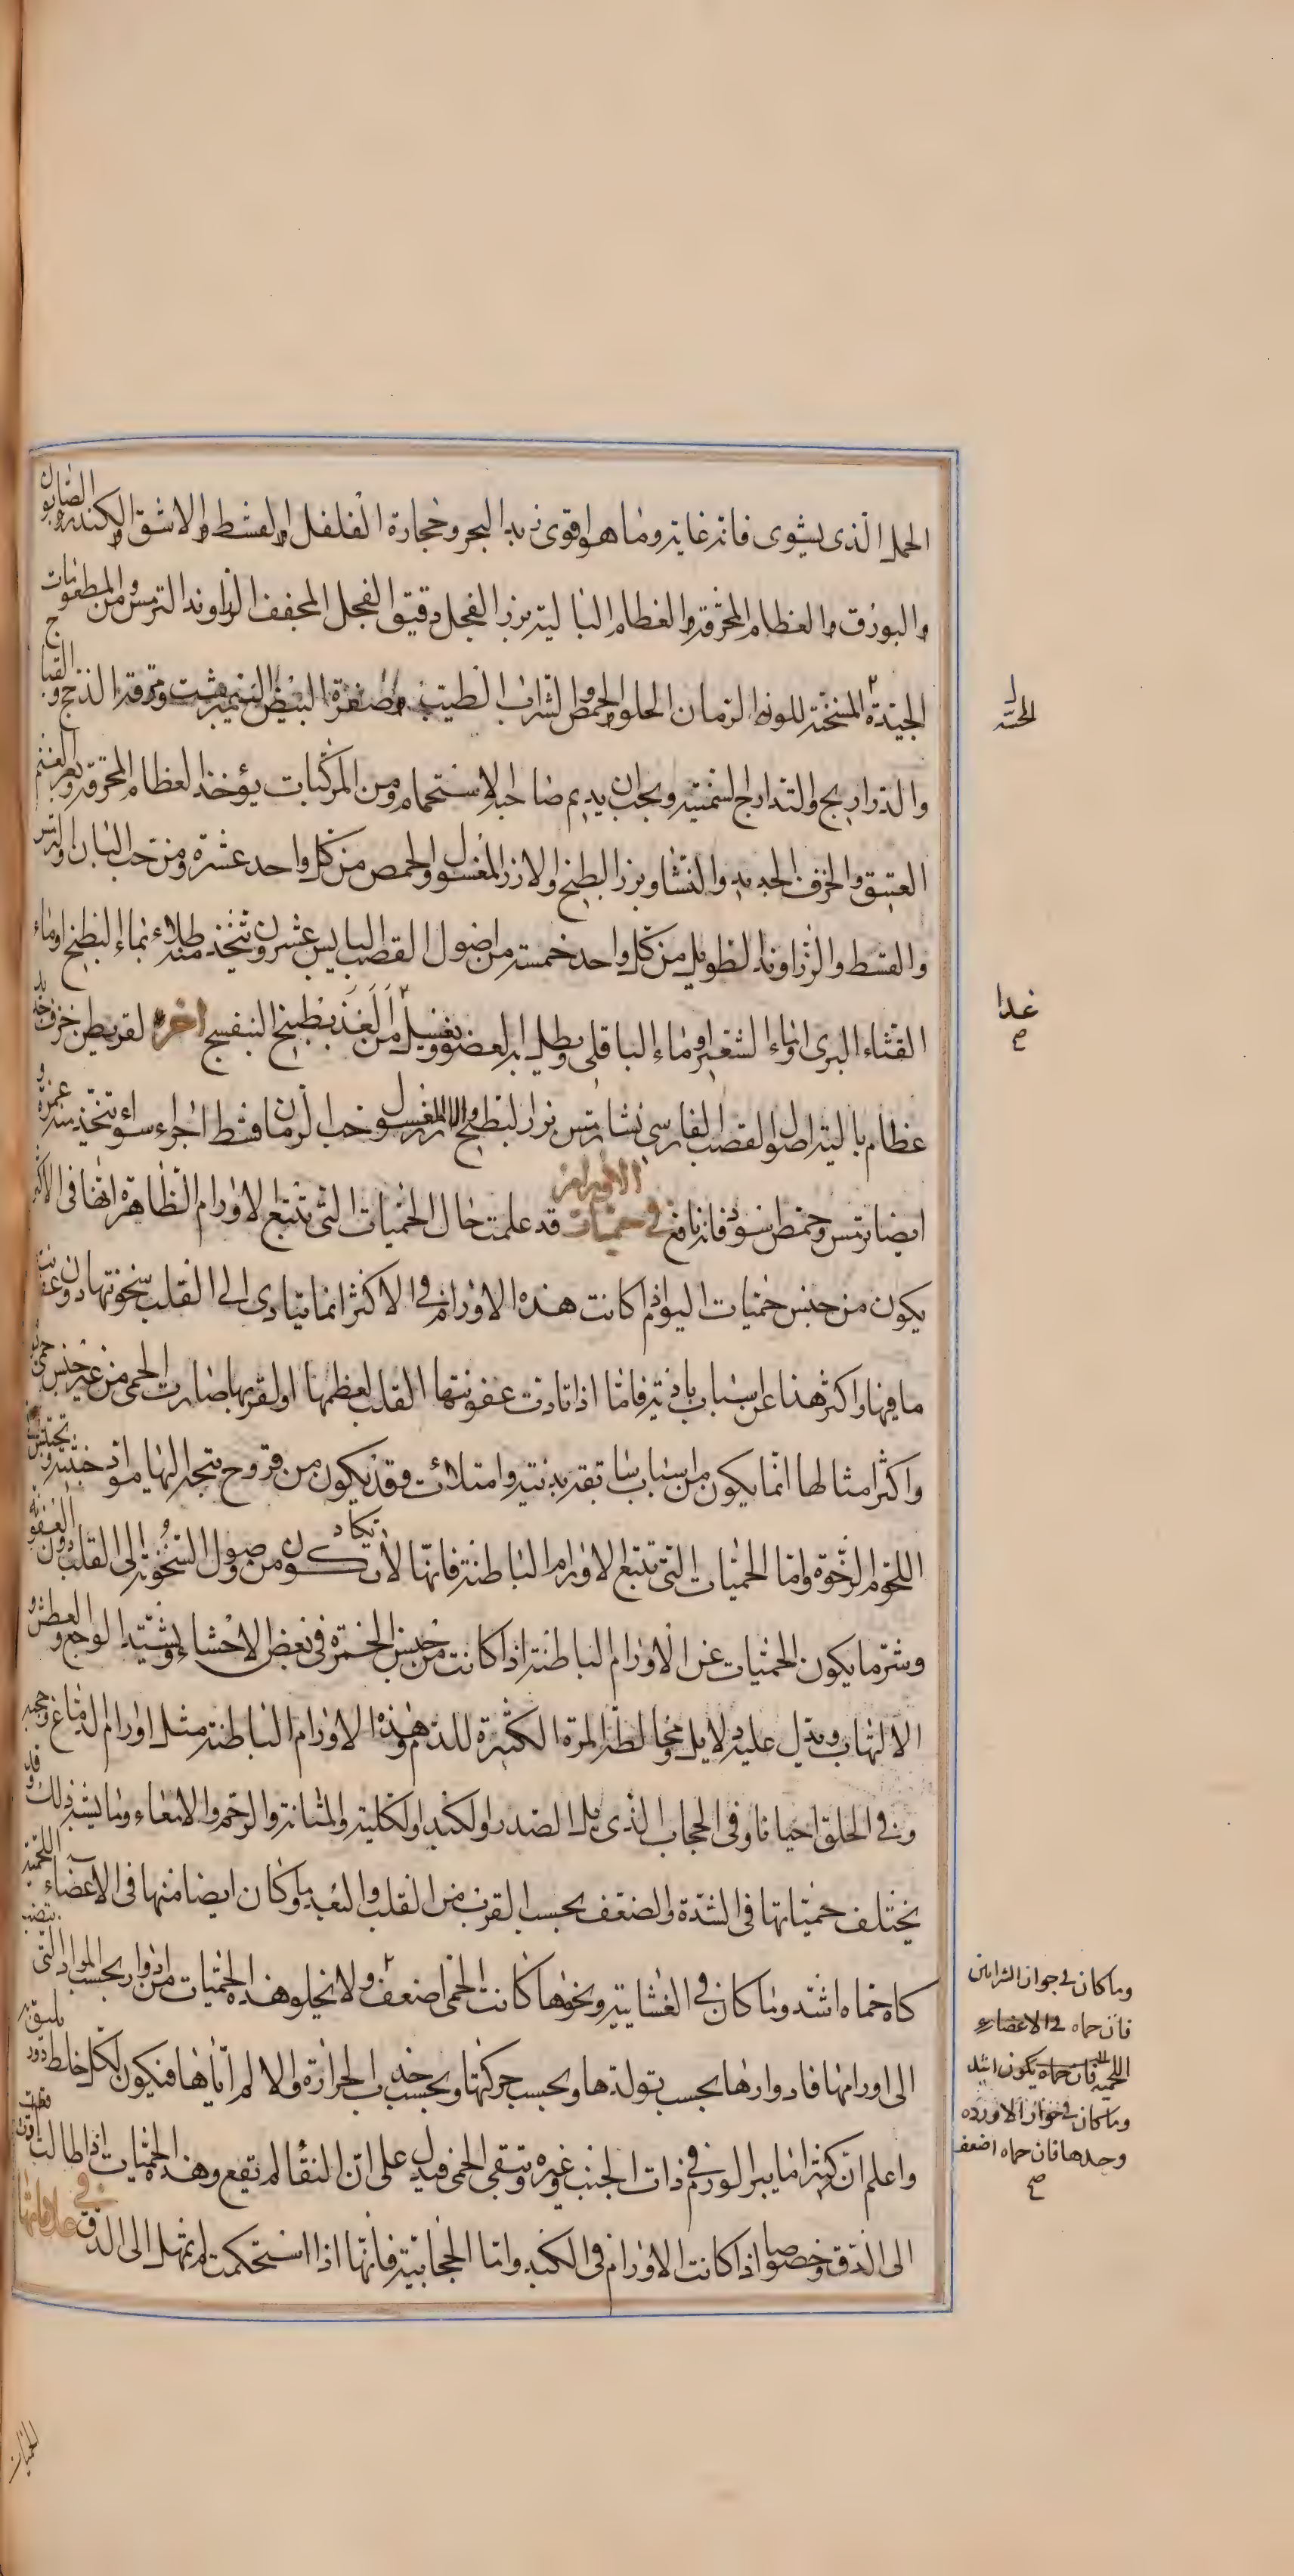 الحمل الذى يشوى فانه غاية وما هو اقوى زبد البحر وحجارة الفلفل والقسط والاشق والكندر والصابون
والبورق والعظام المحرقة والعظام البالية بزر الفجل دقيق الفجل المجفف الزراوند الترمس ومن المطعومات
الجيدة المسخنة للون الرمان الحلو والحمص والشراب الطيب وصفرة البيض النيمرشت ومرقة الدجاج والقبج
والدراريج والتدارج السمينة ويجب ان يديم صاحبه الاستحمام ومن المركبات يؤخذ العظام المحرقة وبعر الغنم
العتيق والخزف الجديد والنشا وبزر البطيخ والارز المغسول والحمص من كل واحد عشرة ومن حب البان والترمس
والقسط والزراوند الطويل من كل واحد خمسة من اصول القصب اليابس عشرون تتخذ منه طلاء بماء البطيخ او ماء
القثاء البرى او ماء الشعير او ماء الباقلى ويطلى به العضو ويغسل من الغد بطبيخ البنفسج اخرى لقريطن خزف جديد
عظام بالية اصول القصب الفارسى نشا ترمس بزر البطيخ والارز المغسول وحب الرمان قسط اجزاء سواء وتتخذ منه غمرة و
ايضا ترمس وحمص اسود فانه نافع فى حميات الاورام قد علمت حال الحميات التى تتبع الاورام الظاهرة انها فى الاكثر
يكون من جنس حميات اليوم اذا كانت هذه الاورام فى الاكثر انما يتادى الى القلب سخونتها دون عفونة
ما فيها واكثر هذا عن اسباب بادية فاما اذا تادت عفونتها الى القلب لعظمها او لقربها صارت الحمى من غير جنس حمى
واكثر امثالها انما يكون من اسباب سابقة بدنية وامتلائات وقد يكون من قروح يتجه اليها مواد خبيثة وتحتبس
اللحوم الرخوة واما الحميات التى تتبع الاورام الباطنة فانها لا تكاد تكون من وصول السخونة الى القلب دون العفونة
وشر ما يكون الحميات عن الاورام الباطنة اذا كانت من جنس الحمرة فى بعض الاحشاء ويشتد الوجع والعطش و
الالتهاب ويدل عليه دلايل مخالطة المرة الكثيرة للدم وهذه الاورام الباطنة مثل اورام الدماغ وحجبه
وفى الحلق احيانا وفى الحجاب الذى يلى الصدر والكبد والكلية والمثانة والرحم والامعاء وما يشبه ذلك وقد
يختلف حمياتها فى الشدة والضعف بحسب القرب من القلب والبعد وما كان ايضا منها فى الاعضاء اللحمية
كان حماه اشد وما كان فى الغشائية ونحوها كانت الحمى اضعف ولا يخلو هذه الحميات من ادوار بحسب المواد التى تنصب
الى اورامها فادوارها بحسب تولدها وبحسب حركتها وبحسب جذب الحرارة والالم اياها فيكون لكل خلط دور يليق به
واعلم ان كثيرا ما يبرا الورم فى ذات الجنب وغيره وتبقى الحمى فيدل على ان النقا لم يقع وهذه الحميات اذا طالت ادت
الى الدق وخصوصا اذا كانت الاورام فى الكبد واما الحجابية فانها اذا استحكمت لم تمهل الى الدق فى علاماتها
غدا
صح
وما كان فى جوار الشرايين
فان حماه فى الاعضاء
اللحمية فان حماه يكون اشد
وما كان فى جوار الاوردة
وحدها فان حماه اضعف
صح